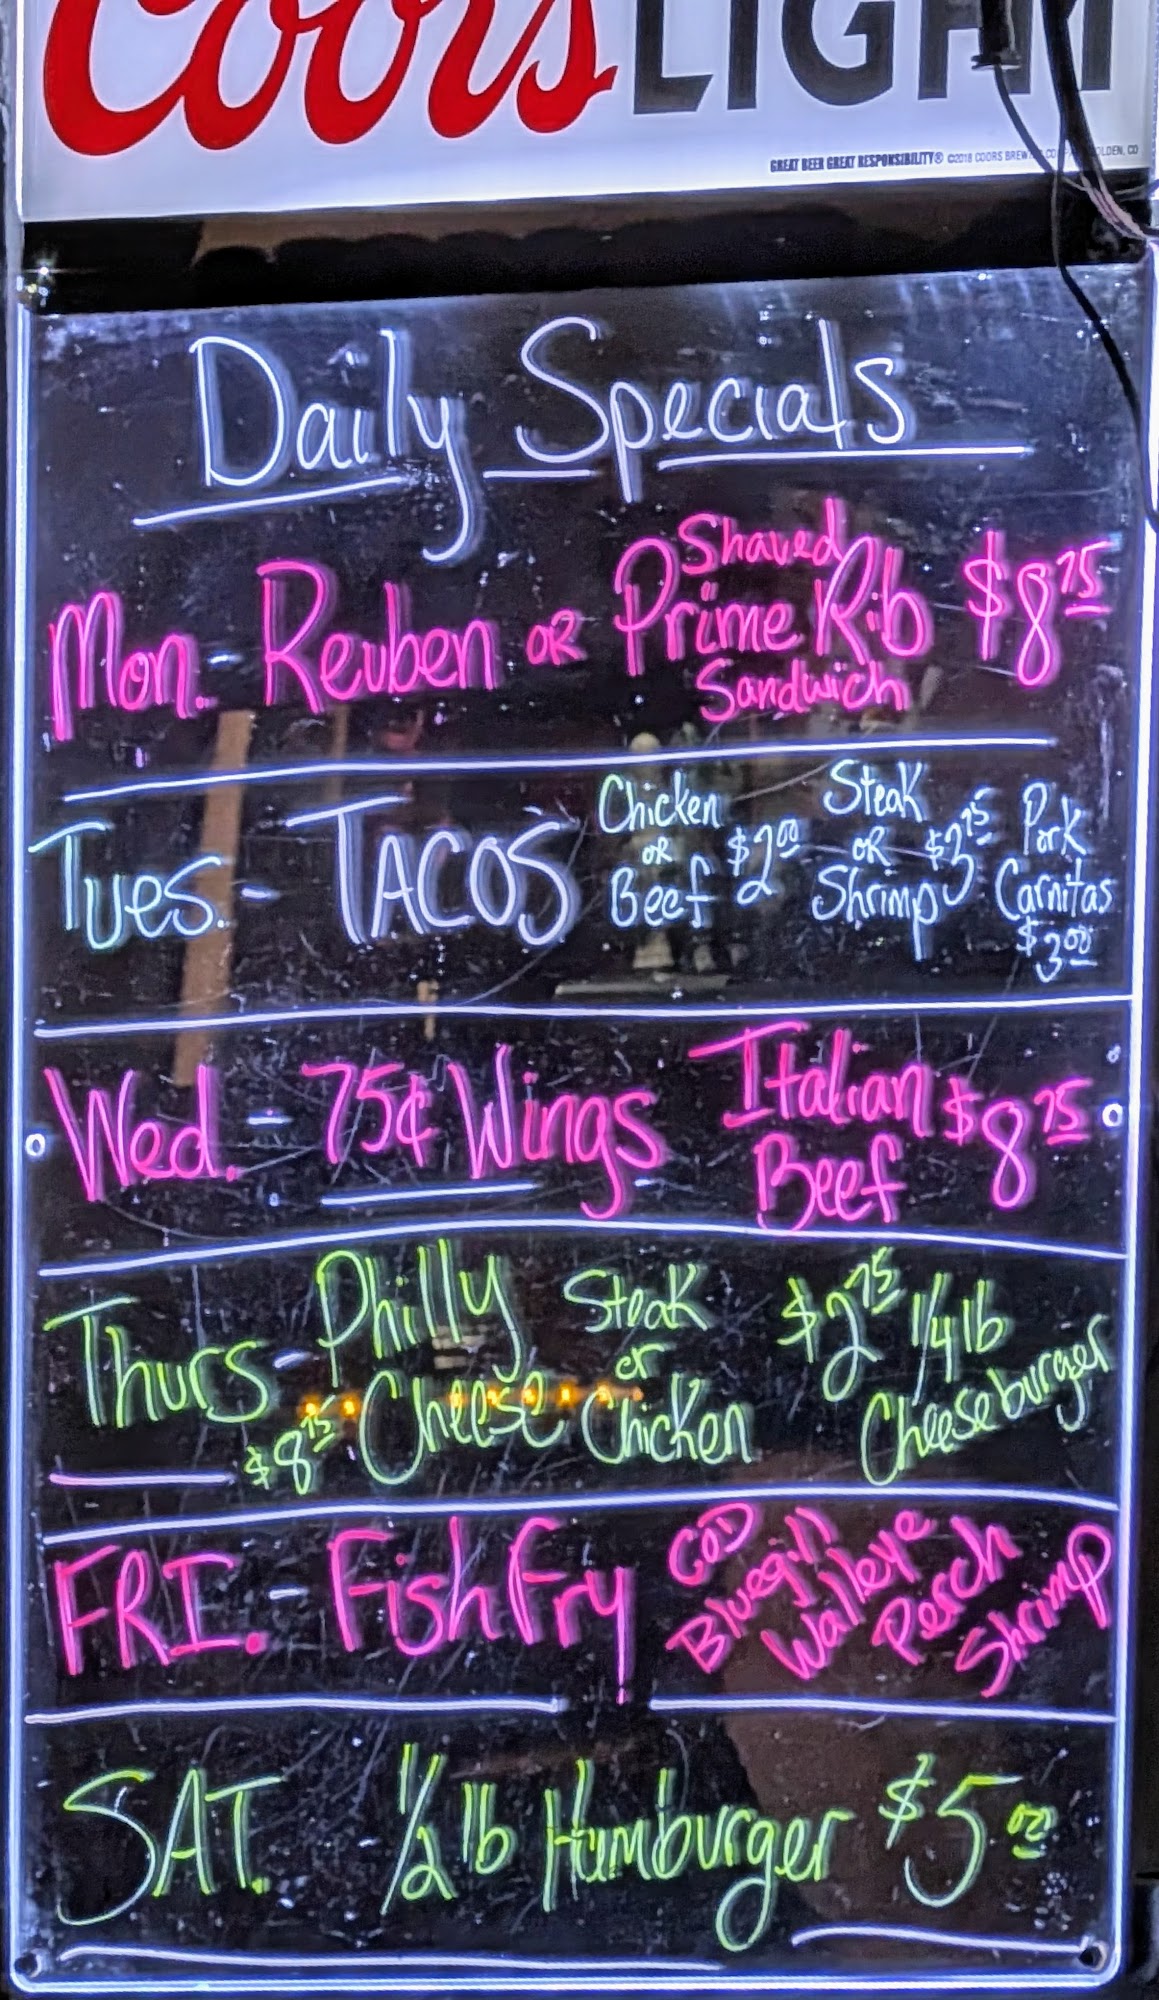 Coors LIGHT
GREAT BEER GREAT RESPONSIBILITY® ©2018 COORS BREWING COMPANY, GOLDEN, CO
Daily Specials
Mon. - Reuben OR Shaved Prime Rib Sandwich $8.75
Tues. - TACOS Chicken OR Beef $2.00 Steak OR Shrimp $3.75 Pork Carnitas $3.00
Wed. - 75¢ Wings Italian Beef $8.75
Thurs - Philly Cheese Steak or Chicken $8.75 $2.75 1/4 lb Cheeseburger
FRI. - Fish Fry COD Bluegill Walleye Perch Shrimp
SAT. 1/2 lb Hamburger $5.00